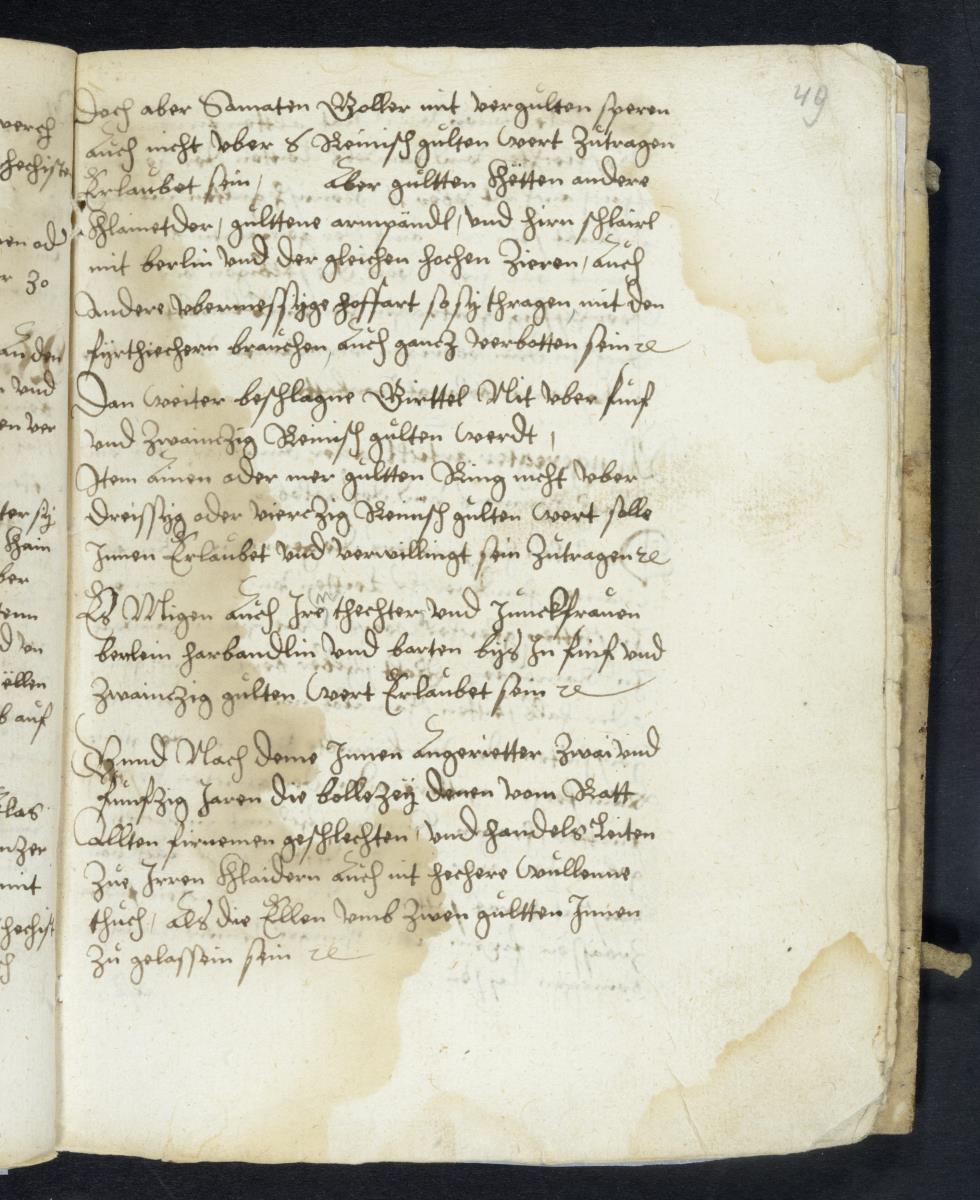 49
Doch aber Samaten Goller mit vergulten speren
auch nicht vber 8 Reinisch gulten wert Zutragen
Erlaubet sein, Aber gultten Khetten andere
Khlainetder, gulttene armpändl, vnd hirn schlairl
mit berlin vnd der gleichen hochen Zieren, auch
Andere vbermessyge hoffart so sy thragen, mit den
fyrthiechern brauchen, auch gancz verbotten sein ꝛc
Dan weiter beschlagne Girttel Nit vber funf
vnd zwainczig Reinisch gulten werdt,
Item ainen oder mer gultten Ring nicht vber
dreissyg oder vierczig Reinisch gulten wert solle
Innen Erlaubet vnd verwillingt sein Zutragen ꝛc
Es Migen auch Ire thechter vnd Junckfrauen
berlein harbandlin vnd barten bys In finf vnd
zwainczig gulten wert Erlaubet sein ꝛc
Vnnd Nach deme Innen Angerietter Zwai vnd
funfzig Jaren die bollezey denen vom Ratt
Allten firnemen geschlechten, vnd handels Leiten
Zue Irren Khlaidern auch nit hechere wullenne
thuch, als die Ellen vmb zwen gultten Innen
Zu gelassein sein ꝛc
verch
hechiste
en od
r 30
an den
vnd
en ver
ter sy
Khain
ber
enn
d en
ellen
b auf
las
nzer
mit
hechist
ch